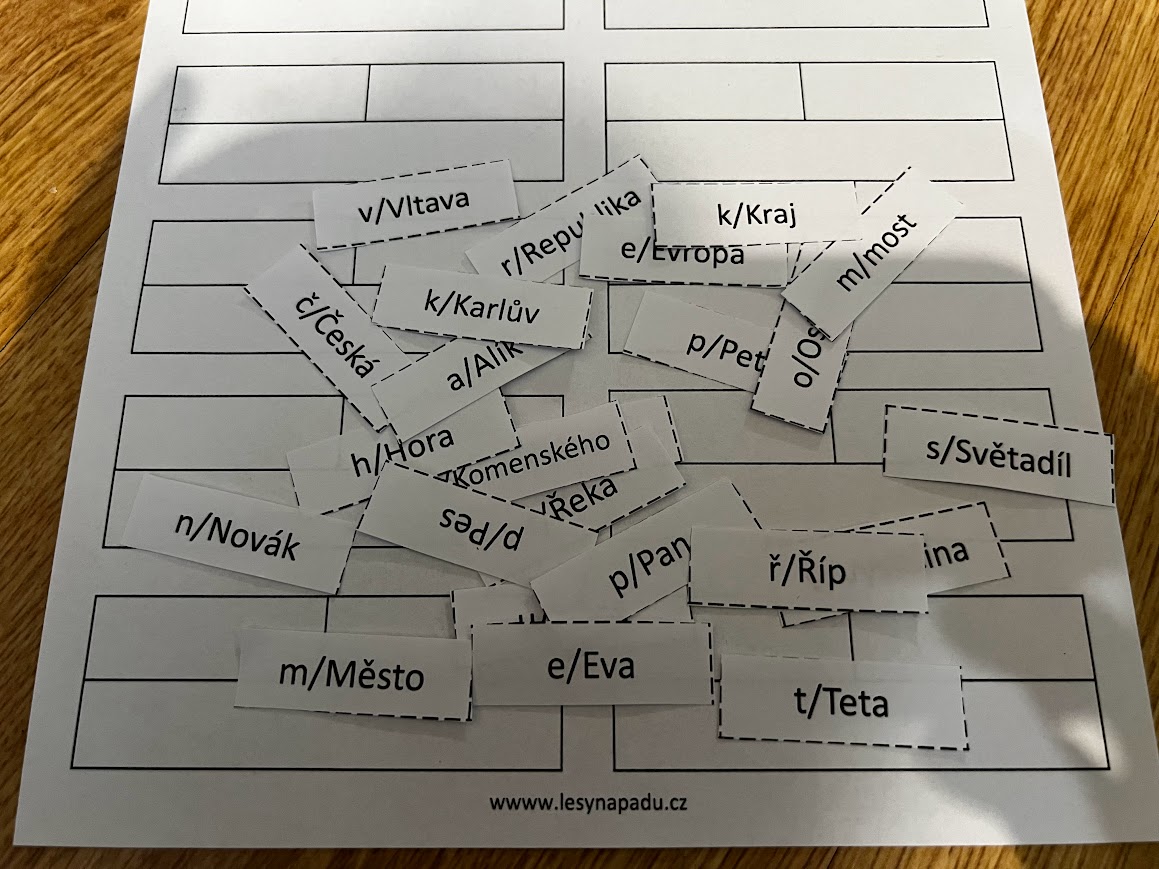 v/Vltava
r/Republika
k/Kraj
e/Evropa
m/most
č/Česká
k/Karlův
a/Alík
p/Pet
h/Hora
/Komenského
/Řeka
s/Světadíl
n/Novák
p/Pes
p/Pan
ř/Říp
ina
m/Město
e/Eva
t/Teta
wwww.lesynapadu.cz